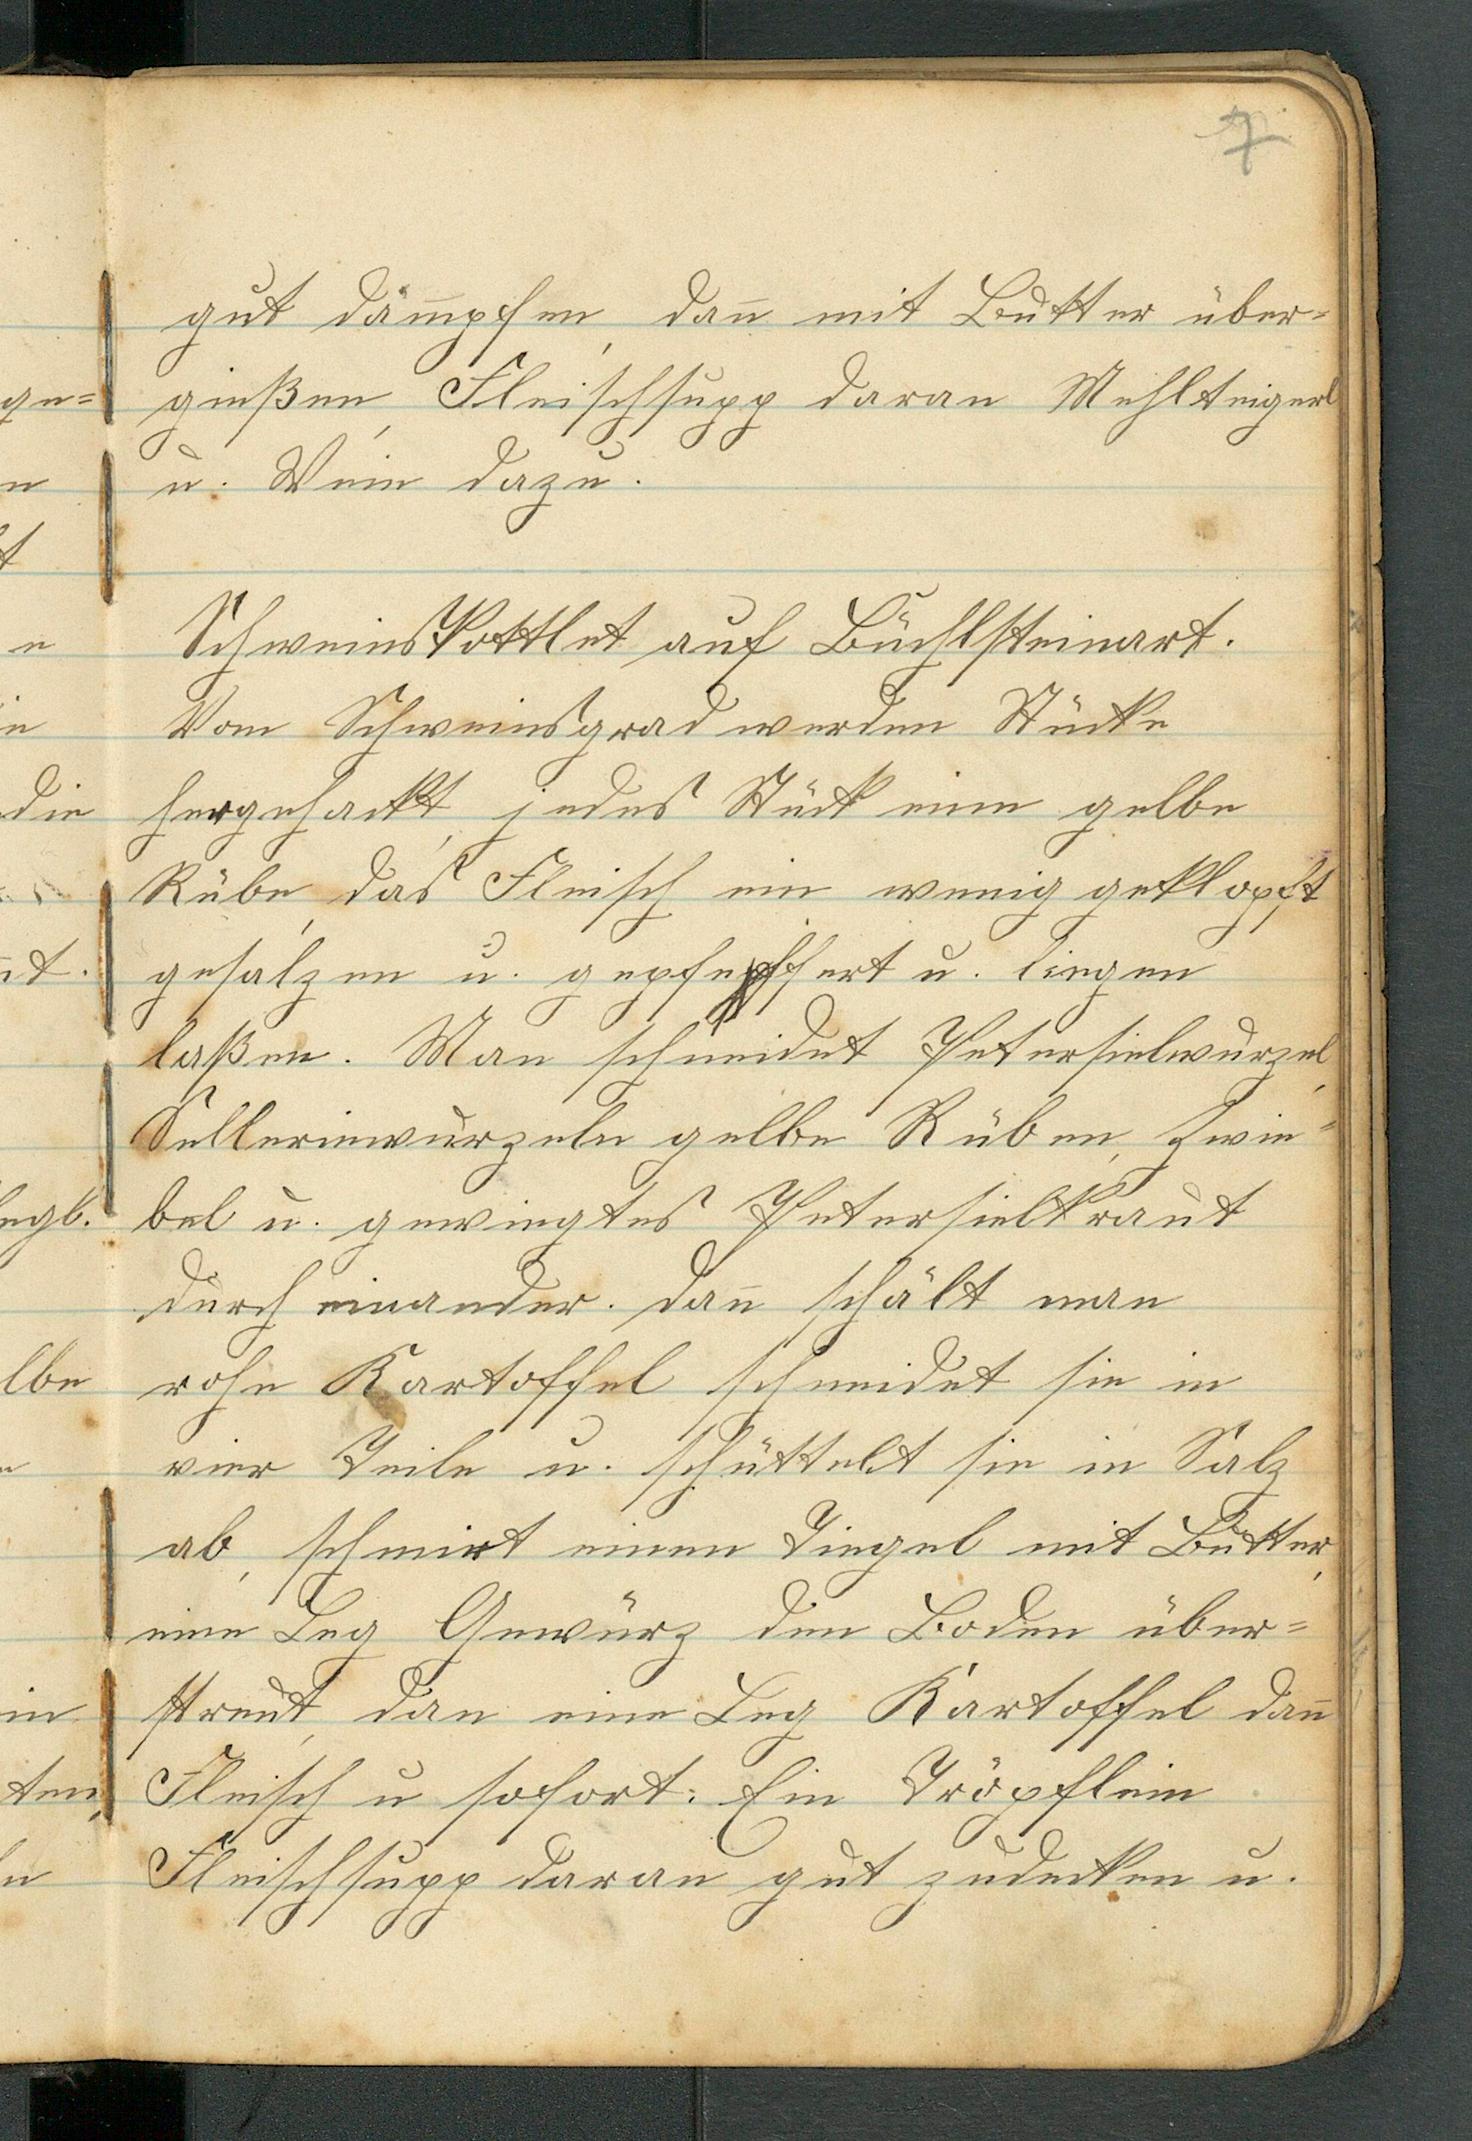 7
gut dämpfen, dan̄ mit Butter über=
gießen, Fleischsupp daran Mehlteigerl
u. Wein dazu.
Schweinskottlet auf Büchlsteinart.
Vom Schweinsgrad werden Stücke
hergehackt, jedes Stück eine gelbe
Rübe, das Fleisch ein wenig geklopft
gesalzen u. gepfeffert u. liegen
laßen. Man schneidet Petersielwurzel,
Selleriewurzeln gelbe Rüben, Zwie=
bel u. gewiegtes Petersielkraut
durch einander. dan̄ schält man
rohe Kartoffel schneidet sie in
vier Teile u. schüttelt sie in Salz
ab, schmirt einen Tiegel mit Butter,
eine Leg Gewürz den Boden über=
streut, dan eine Leg Kartoffel dan̄
Fleisch u sofort: Ein Tröpflein
Fleischsupp daran gut zudecken u.